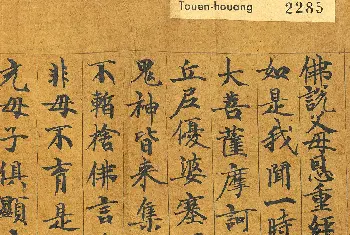 Touen-houang 2285
佛說父母恩重經
如是我聞一時
大善薩摩訶
丘尼優婆塞
鬼神皆来集
不暫捨佛言
非母不育是
母子俱顯